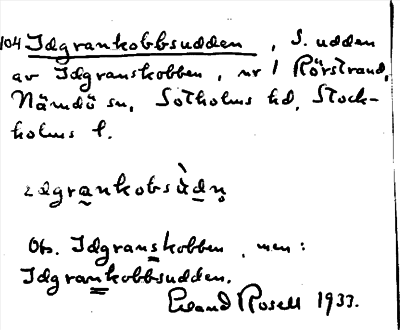 104 Idgrankobbsudden, S. udden
av Idgranskobben, nr 1 Rörstrand,
Nämdö sn, Sotholms hd, Stock-
holms l.
ɩdgrankobsùdn̥
Obs. Idgranskobben, men:
Idgrankobbsudden.
Erland Rosell 1933.